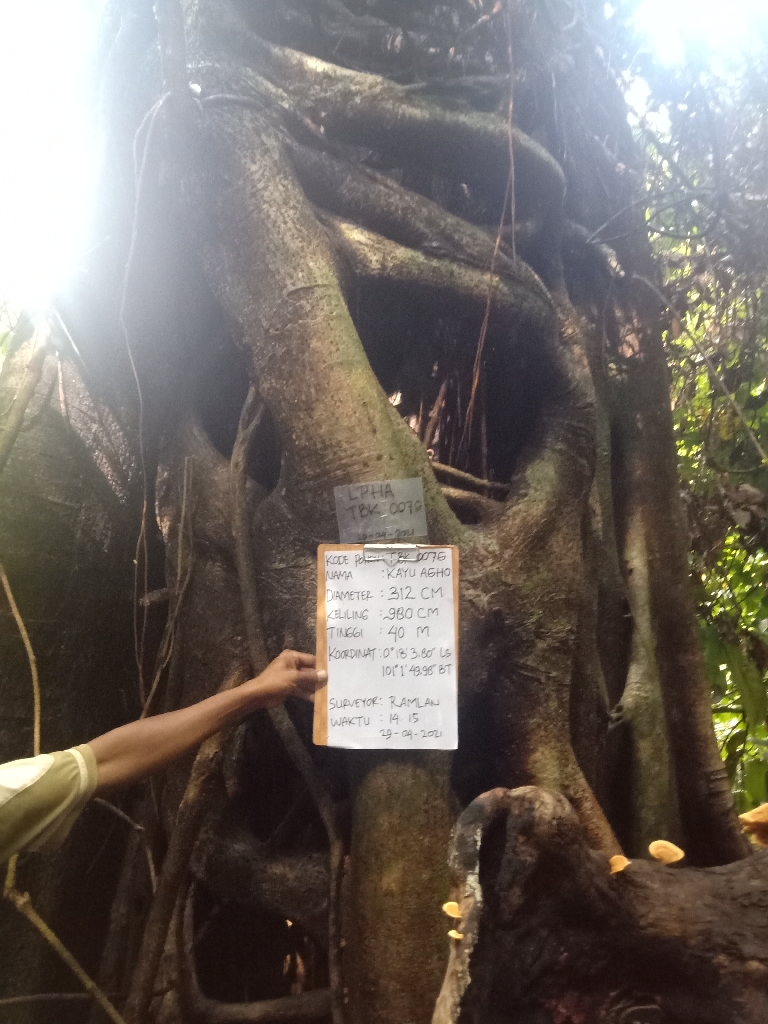 LPHA
TBK 0076
-04-2021
KODE POHON: TBK 0076
NAMA : KAYU AGHO
DIAMETER : 312 CM
KELILING : 980 CM
TINGGI : 40 M
KOORDINAT : 0°18'3.80" LS
101°1'49.98" BT
SURVEYOR : RAMILAN
WAKTU : 14.15
29-04-2021